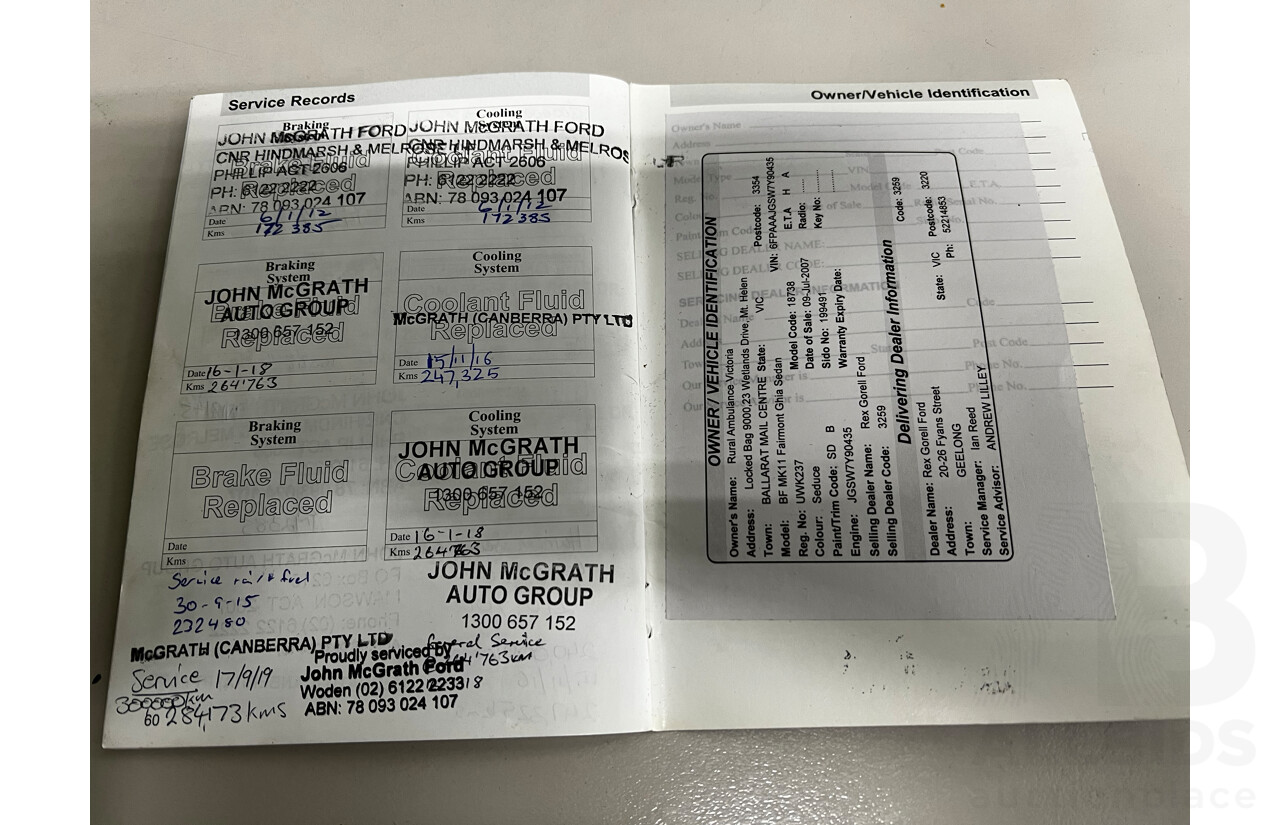 Service Records
Braking
System
JOHN McGRATH FORD
CNR HINDMARSH & MELROSE
PHILLIP ACT 2606
PH: 6122 2222
ABN: 78 093 024 107
Brake Fluid
Replaced
Date 6/1/12
Kms 172 385
Cooling
System
JOHN McGRATH FORD
CNR HINDMARSH & MELROS
PHILLIP ACT 2606
PH: 6122 2222
ABN: 78 093 024 107
Coolant Fluid
Replaced
Date 6/1/12
Kms 172385
Braking
System
JOHN McGRATH
AUTO GROUP
1300 657 152
Brake Fluid
Replaced
Date 16-1-18
Kms 264763
Cooling
System
Coolant Fluid
McGRATH (CANBERRA) PTY LTD
Replaced
Date 15/11/16
Kms 247,325
Braking
System
Brake Fluid
Replaced
Date
Kms
Cooling
System
JOHN McGRATH
AUTO GROUP
1300 657 152
Coolant Fluid
Replaced
Date 16-1-18
Kms 264763
Service
30-9-15
232480
McGRATH (CANBERRA) PTY LTD
Service 17/9/19
300000km
60 284,173 kms
JOHN McGRATH
AUTO GROUP
1300 657 152
General Service
264763km
Proudly serviced by
John McGrath Ford
Woden (02) 6122 2233
ABN: 78 093 024 107
Owner/Vehicle Identification
Owner's Name
Address
OWNER / VEHICLE IDENTIFICATION
Owner's Name: Rural Ambulance Victoria
Address: Locked Bag 9000,23 Wetlands Drive, Mt. Helen
Town: BALLARAT MAIL CENTRE State: VIC Postcode: 3354
Model: BF MK11 Fairmont Ghia Sedan VIN: 6FPAAAJGSW7Y90435
Reg. No: UWK237 Model Code: 18738 E.T.A H A
Colour: Seduce Date of Sale: 09-Jul-2007 Radio: ......
Paint/Trim Code: SD B Sido No: 199491 Key No: ......
Engine: JGSW7Y90435 Warranty Expiry Date:
Selling Dealer Name: Rex Gorell Ford
Selling Dealer Code: 3259
Delivering Dealer Information
Dealer Name: Rex Gorell Ford Code: 3259
Address: 20-26 Fyans Street
Town: GEELONG State: VIC Postcode: 3220
Service Manager: Ian Reed Ph: 52214853
Service Advisor: ANDREW LILLEY